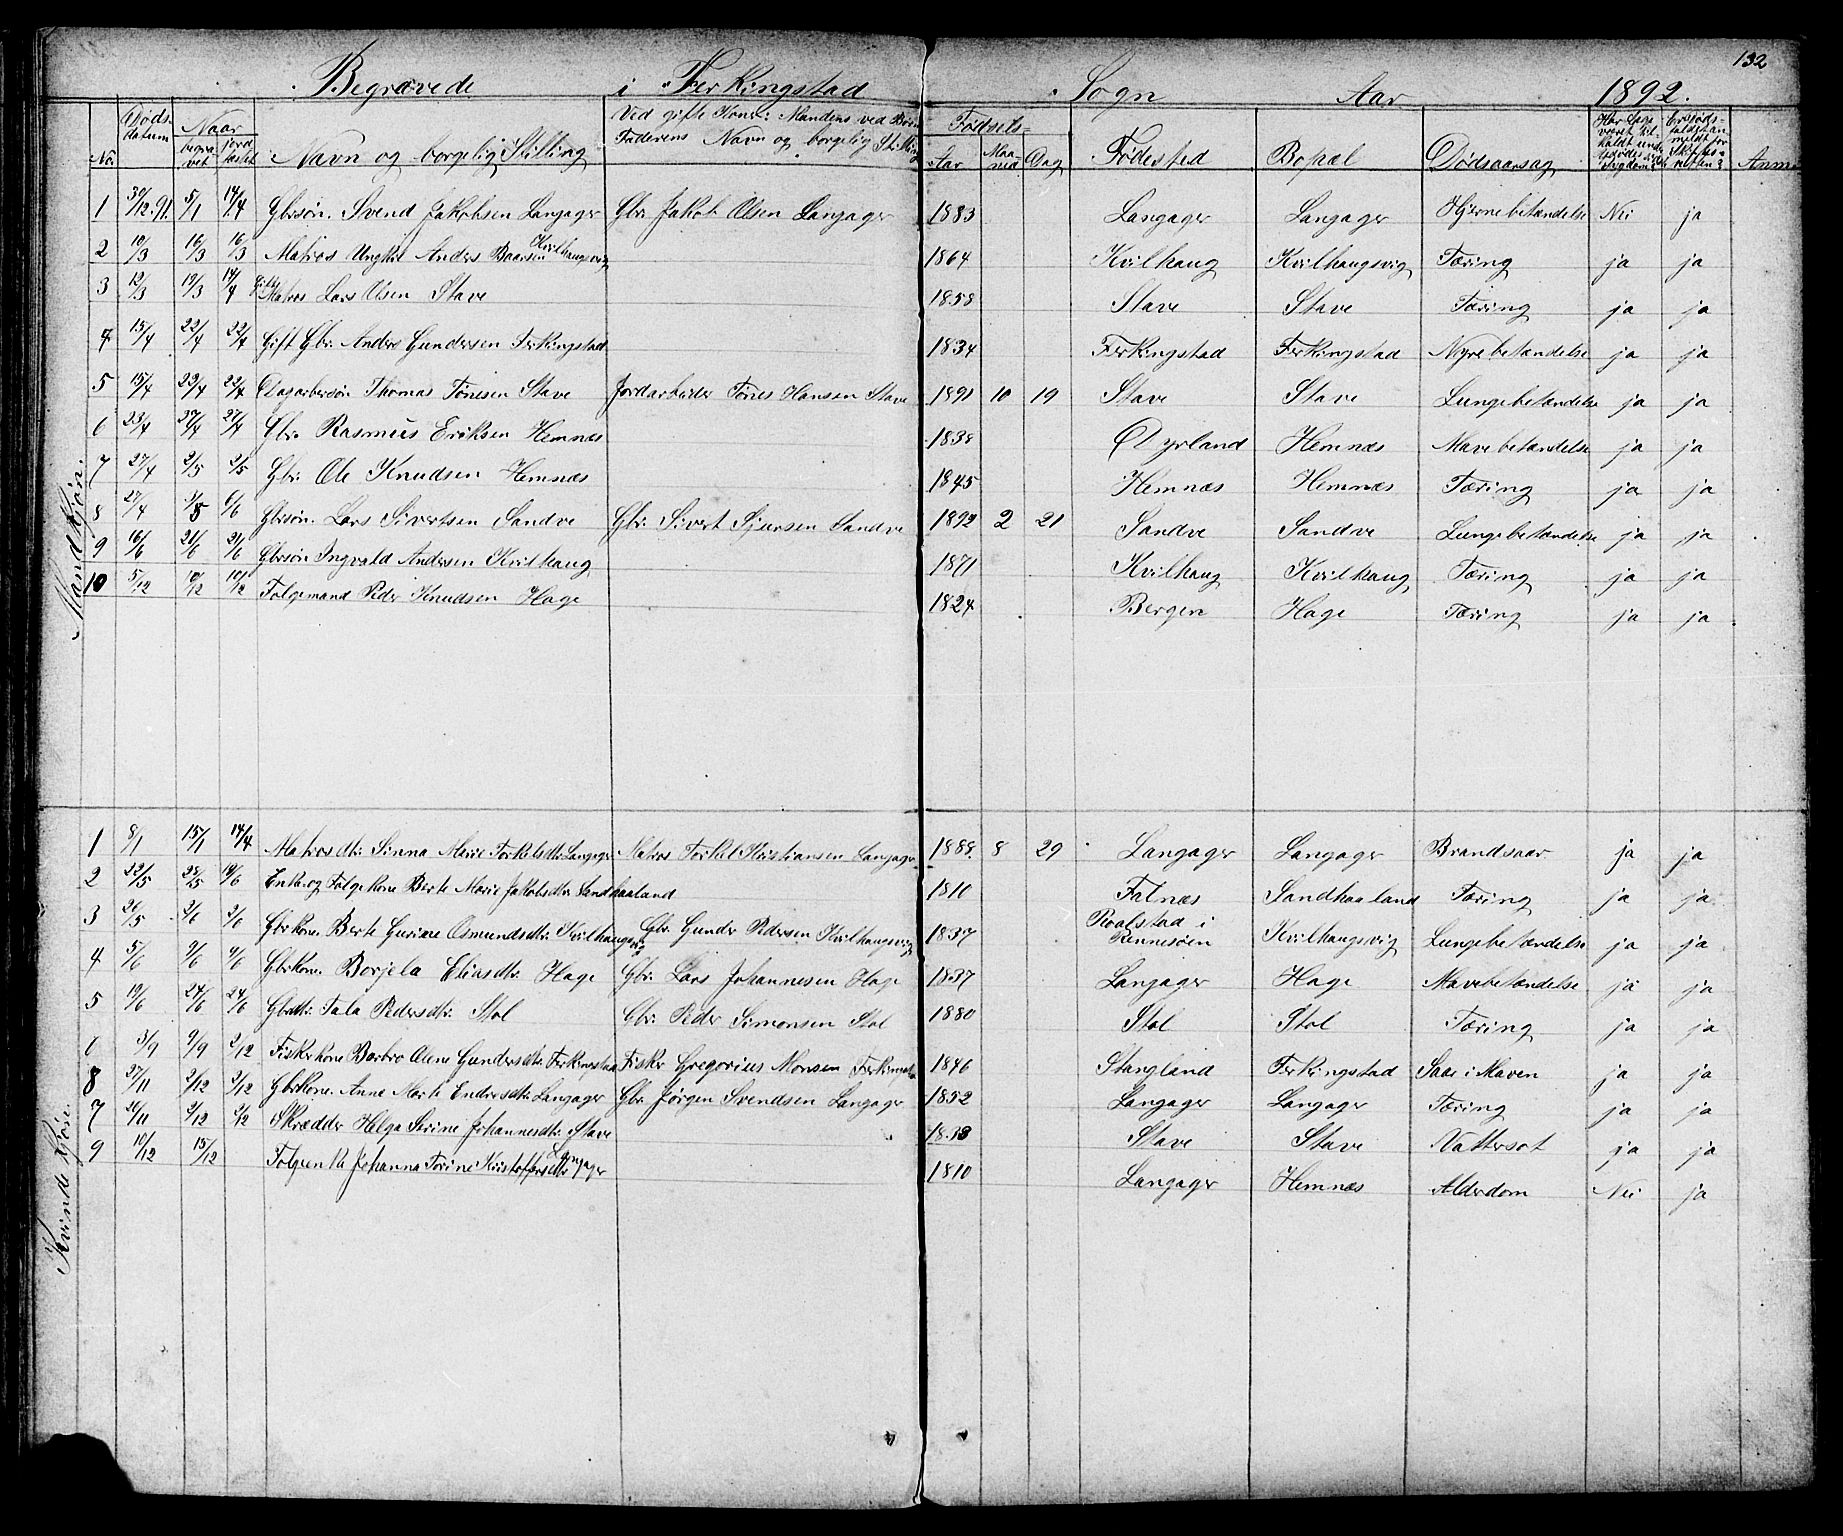 132
Begravede i Ferkingstad Sogn Aar 1892.
No. Døds-datum Naar begra-vet jord-fæstet Navn og borgelig Stilling Ved gifte Koner: Mandens ved Børn Faderens Navn og borgelig Stilling Fødsels- Aar Maa-ned Dag Fødested Bopæl Dødsaarsag Anm
Mandkjøn.
1 30/12.91. 5/1 14/4 Gbrsøn. Svend Jakobsen Langager Gbr. Jakob Olsen Langager 1883 Langager Langager Hjernebetændelse Nei ja
2 10/3 16/3 16/3 Matros Ungkl. Anders Baarsen Kvilhaugsvig 1864 Kvilhaug Kvilhaugsvig Tæring ja ja
3 12/3 19/3 14/4 Gift Matros Lars Olsen Stave 1858 Stave Stave Tæring ja ja
4 15/4 22/4 22/4 Gift Gbr. Anders Gundersen Ferkingstad 1834 Ferkingstad Ferkingstad Nyrebetændelse ja ja
5 15/4 22/4 22/4 Dagarbersøn Thomas Tønesen Stave Jordarbeider Tønes Hansen Stave 1891 10 19 Stave Stave Lungebetændelse ja ja
6 23/4 27/4 27/4 Gbr. Rasmus Eriksen Hemnæs 1838 Dyrland Hemnæs Mavebetændelse ja ja
7 27/4 2/5 2/5 Gbr. Ole Knudsen Hemnæs 1845 Hemnæs Hemnæs Tæring ja ja
8 27/4 3/5 6/6 Gbrsøn. Lars Sivertsen Sandve Gbr. Sivert Sjursen Sandve 1892 2 21 Sandve Sandve Lungebetændelse ja ja
9 16/6 21/6 21/6 Gbrsøn Ingvald Andersen Kvilhaug 1871 Kvilhaug Kvilhaug Tæring ja ja
10 5/12 10/12 10/12 Folgemand Peder Knudsen Hage 1824 Bergen Hage Tæring ja ja
Kvindekjøn.
1 8/1 15/1 14/4 Matrosdtr. Sinna Marie Torkelsdtr. Langager Matros Torkel Kristiansen Langager 1888. 8 29 Langager Langager Brandsaar ja ja
2 22/5 25/5 19/6 Enke og Folgekone Berte Marie Jakobsdtr. Sandhaaland 1810 Falnæs Sandhaaland Tæring ja ja
3 26/5 2/6 2/6 Gbrkone. Berte Gurine Osmundsdtr. Kvilhaugsvig Gbr. Gunder Pedersen Kvilhaugsvig 1837 Roalstad i Rennesøen Kvilhaugsvig Lungebetændelse ja ja
4 5/6 9/6 9/6 Gbrkone. Borjela Eliasdtr. Hage Gbr. Lars Johannesen Hage 1837 Langager Hage Mavebetændelse ja ja
5 19/6 24/6 24/6 Gbrdtr. Tala Pedersdtr. Stol Gbr. Peder Simonsen Stol 1880 Stol Stol Tæring ja ja
6 3/9 9/9 2/12 Fiskerkone Barbro Olene Gundersdtr. Ferkingstad Fisker Gregorius Monsen Ferkingstad 1846 Stangland Ferkingstad Saar i Maven ja ja
8 27/11 2/12 2/12 Gbrkone. Anne Marte Endresdtr. Langager Gbr. Jørgen Svendsen Langager 1852 Langager Langager Tæring ja ja
7 26/11 2/12 2/12 Skrædder Helga Serine Johannesdtr. Stave Stave Stave Vattersot ja ja
9 10/12 15/12 Johanna Torine Kristoffersdtr. Langager 1810 Langager Hemnæs Alderdom Nei ja